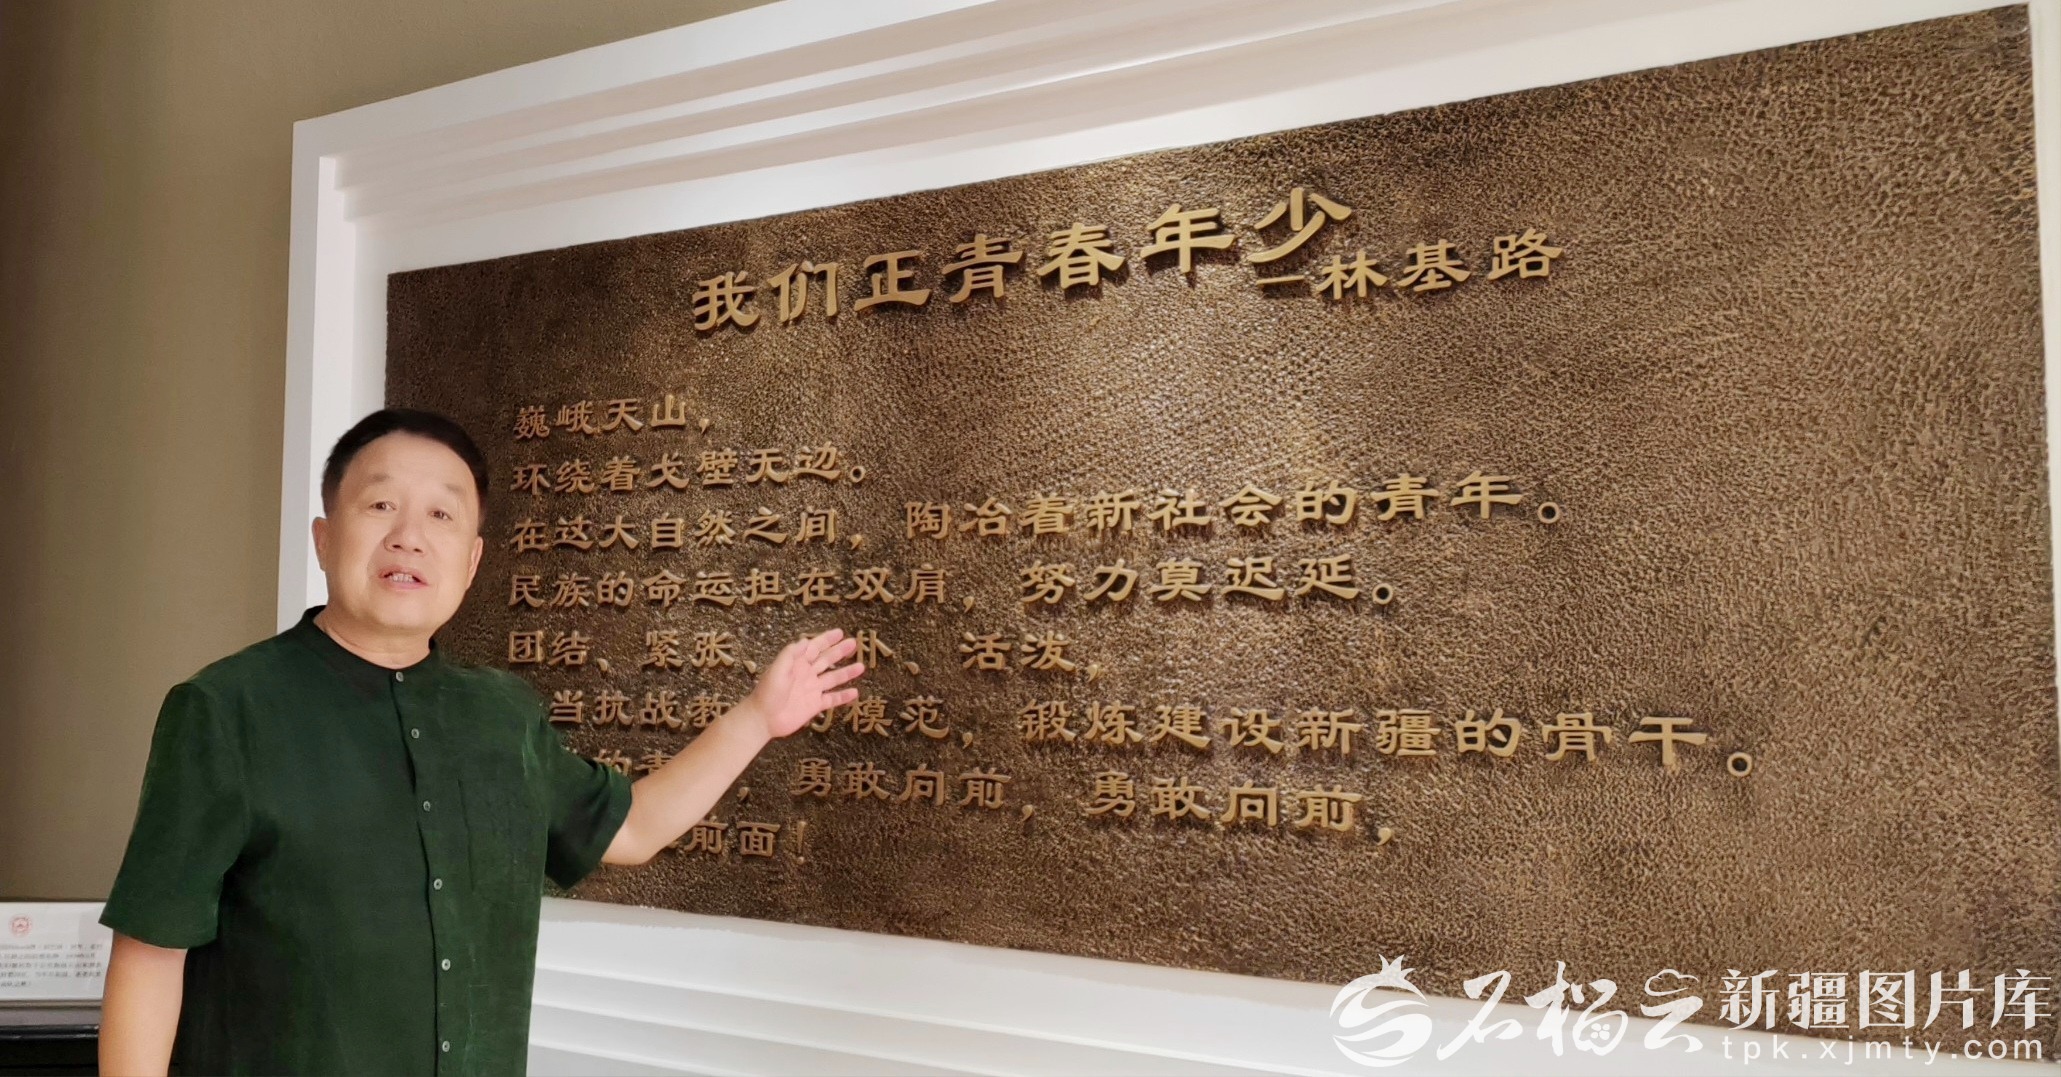 我们正青春年少
—林基路
巍峨天山，
环绕着戈壁无边。
在这大自然之间，陶冶着新社会的青年。
民族的命运担在双肩，努力莫迟延。
团结、紧张、朴、活泼，
当抗战教的模范，锻炼建设新疆的骨干。
的青，勇敢向前，勇敢向前，
前面！
石榴云 新疆图片库
tpk.xjmty.com